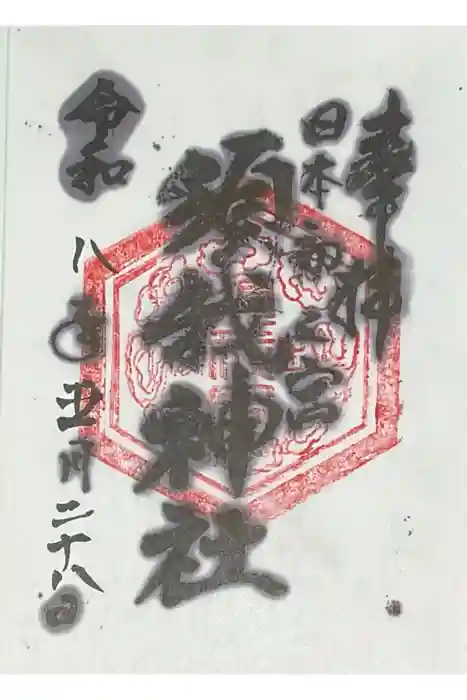 奉拝
日本初之宮
須我神社
令和八年五月二十八日